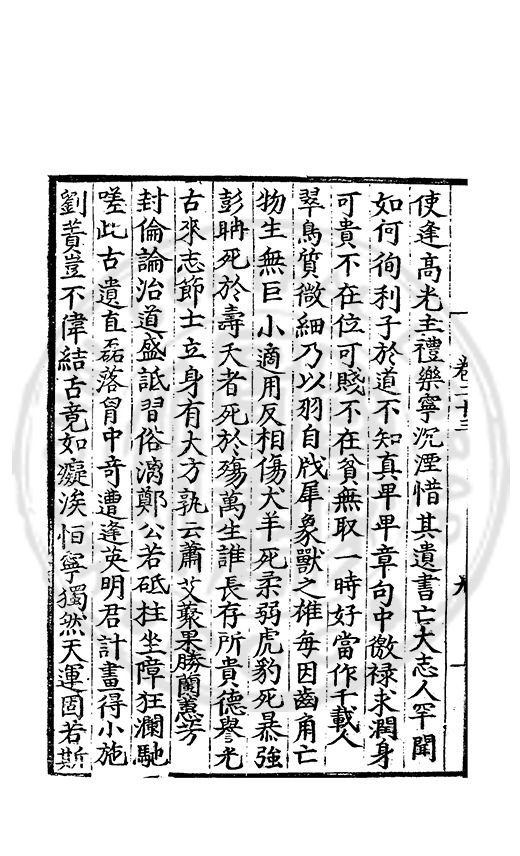 卷二十三
九
使逢高光主禮樂寧沉湮惜其遺書亡大志人罕聞
如何徇利子於道不知真卑卑章句中徼祿求潤身
可貴不在位可賤不在貧無取一時好當作千載人
翠鳥質微細乃以羽自戕犀象獸之雄每因齒角亡
物生無巨小適用反相傷犬羊死柔弱虎豹死暴強
彭聃死於壽夭者死於殤萬生誰長存所貴德譽光
古來志節士立身有大方孰云蕭艾蘩果勝蘭蕙芳
封倫論治道盛詆習俗漓鄭公若砥柱坐障狂瀾馳
嗟此古遺直磊落胷中奇遭逢英明君計畫得小施
劉蕡豈不偉結舌竟如癡涘恒寧獨然天運固若斯